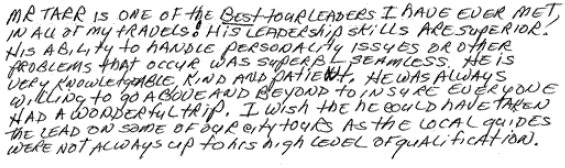 MR TARR IS ONE OF THE BEST TOUR LEADERS I HAVE EVER MET,
IN ALL OF MY TRAVELS! HIS LEADERSHIP SKILLS ARE SUPERIOR.
HIS ABILITY TO HANDLE PERSONALITY ISSUES OR OTHER
PROBLEMS THAT OCCUR WAS SUPERB, SEAMLESS. HE IS
VERY KNOWLEDGABLE, KIND AND PATIENT. HE WAS ALWAYS
WILLING TO GO ABOVE AND BEYOND TO INSURE EVERYONE
HAD A WONDERFUL TRIP. I WISH THE HE COULD HAVE TAKEN
THE LEAD ON SOME OF OUR CITY TOURS AS THE LOCAL GUIDES
WERE NOT ALWAYS UP TO HIS HIGH LEVEL OF QUALIFICATION.